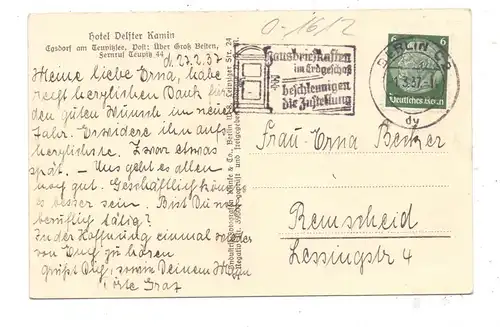 O-1612
Hotel Delfter Kamin
Egsdorf am Teupitzsee, Post: Über Groß Besten,
Fernruf Teupitz 44
d. 23.2.37
Meine liebe Erna, habe
recht herzlichen Dank für
den guten Wunsch im neuen
Jahr. Erwidere ihn aufs
herzlichste. Zwar etwas
spät. – Uns geht es allen
noch gut. Geschäftlich könnte
es besser sein. Bist Du noch
beruflich tätig?
In der Hoffnung einmal wieder
von Euch zu hören
grüßt Dich, sowie Deinem Mann
Hausbriefkasten
im Erdgeschoß
beschleunigen
die Zustellung
BERLIN
37
dy
6 6
Deutsches Reich
Frau Erna Becker
Remscheid
Lessingstr 4